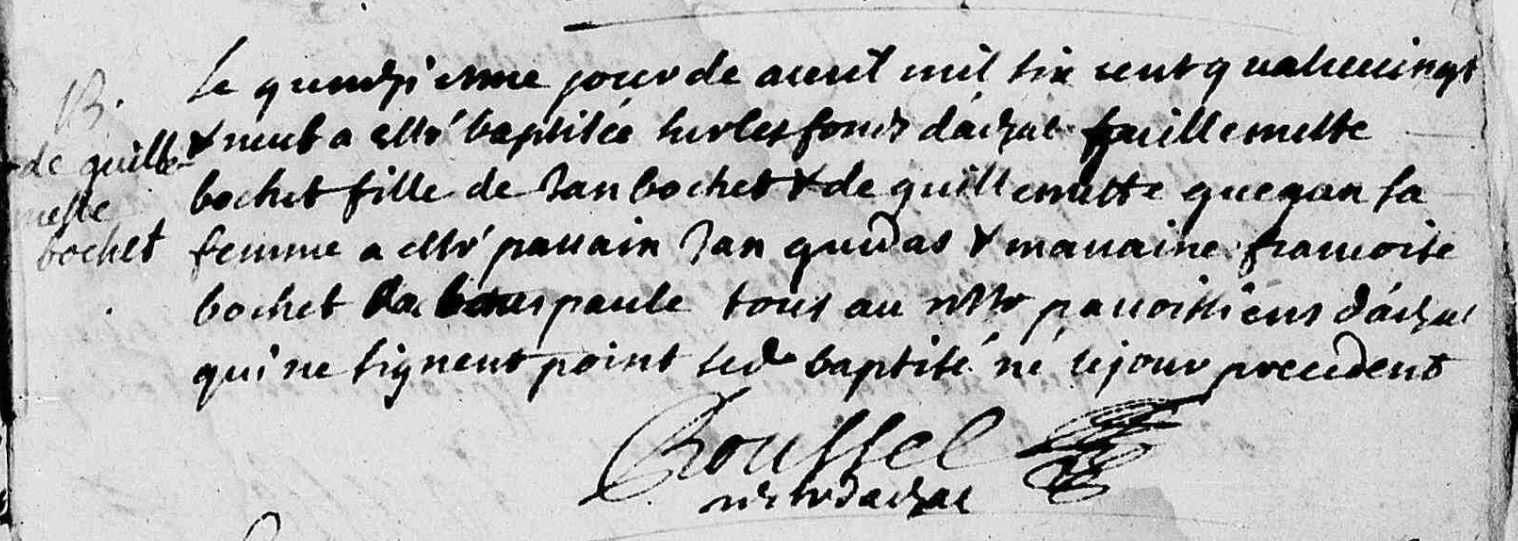 B.
de guille-
mette
bochet
Le quinzieme jour de avril mil six cent quatrevingt
& neuf a esté baptisée sur les fonds d'arzal guillemette
bochet fille de Jan bochet & de guillemette queqan sa
femme a esté parrain Jan quidas & marraine francoise
bochet paule tous au parroissiens d'arzal
qui ne signent point led baptisé né le jour precedent
Roussel
r d'arzal